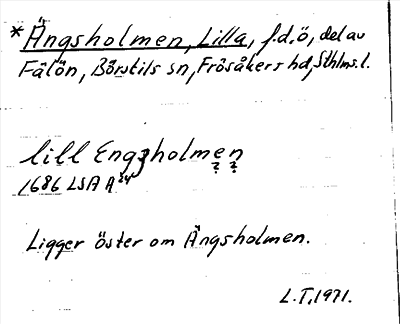 * Ängsholmen, Lilla, f.d.ö, del av
Fälön, Börstils sn, Frösåkers hd, Sthlms.l.
lill Engzholmen
? ?
1686 LSA A 24
Ligger öster om Ängsholmen.
L.T. 1971.